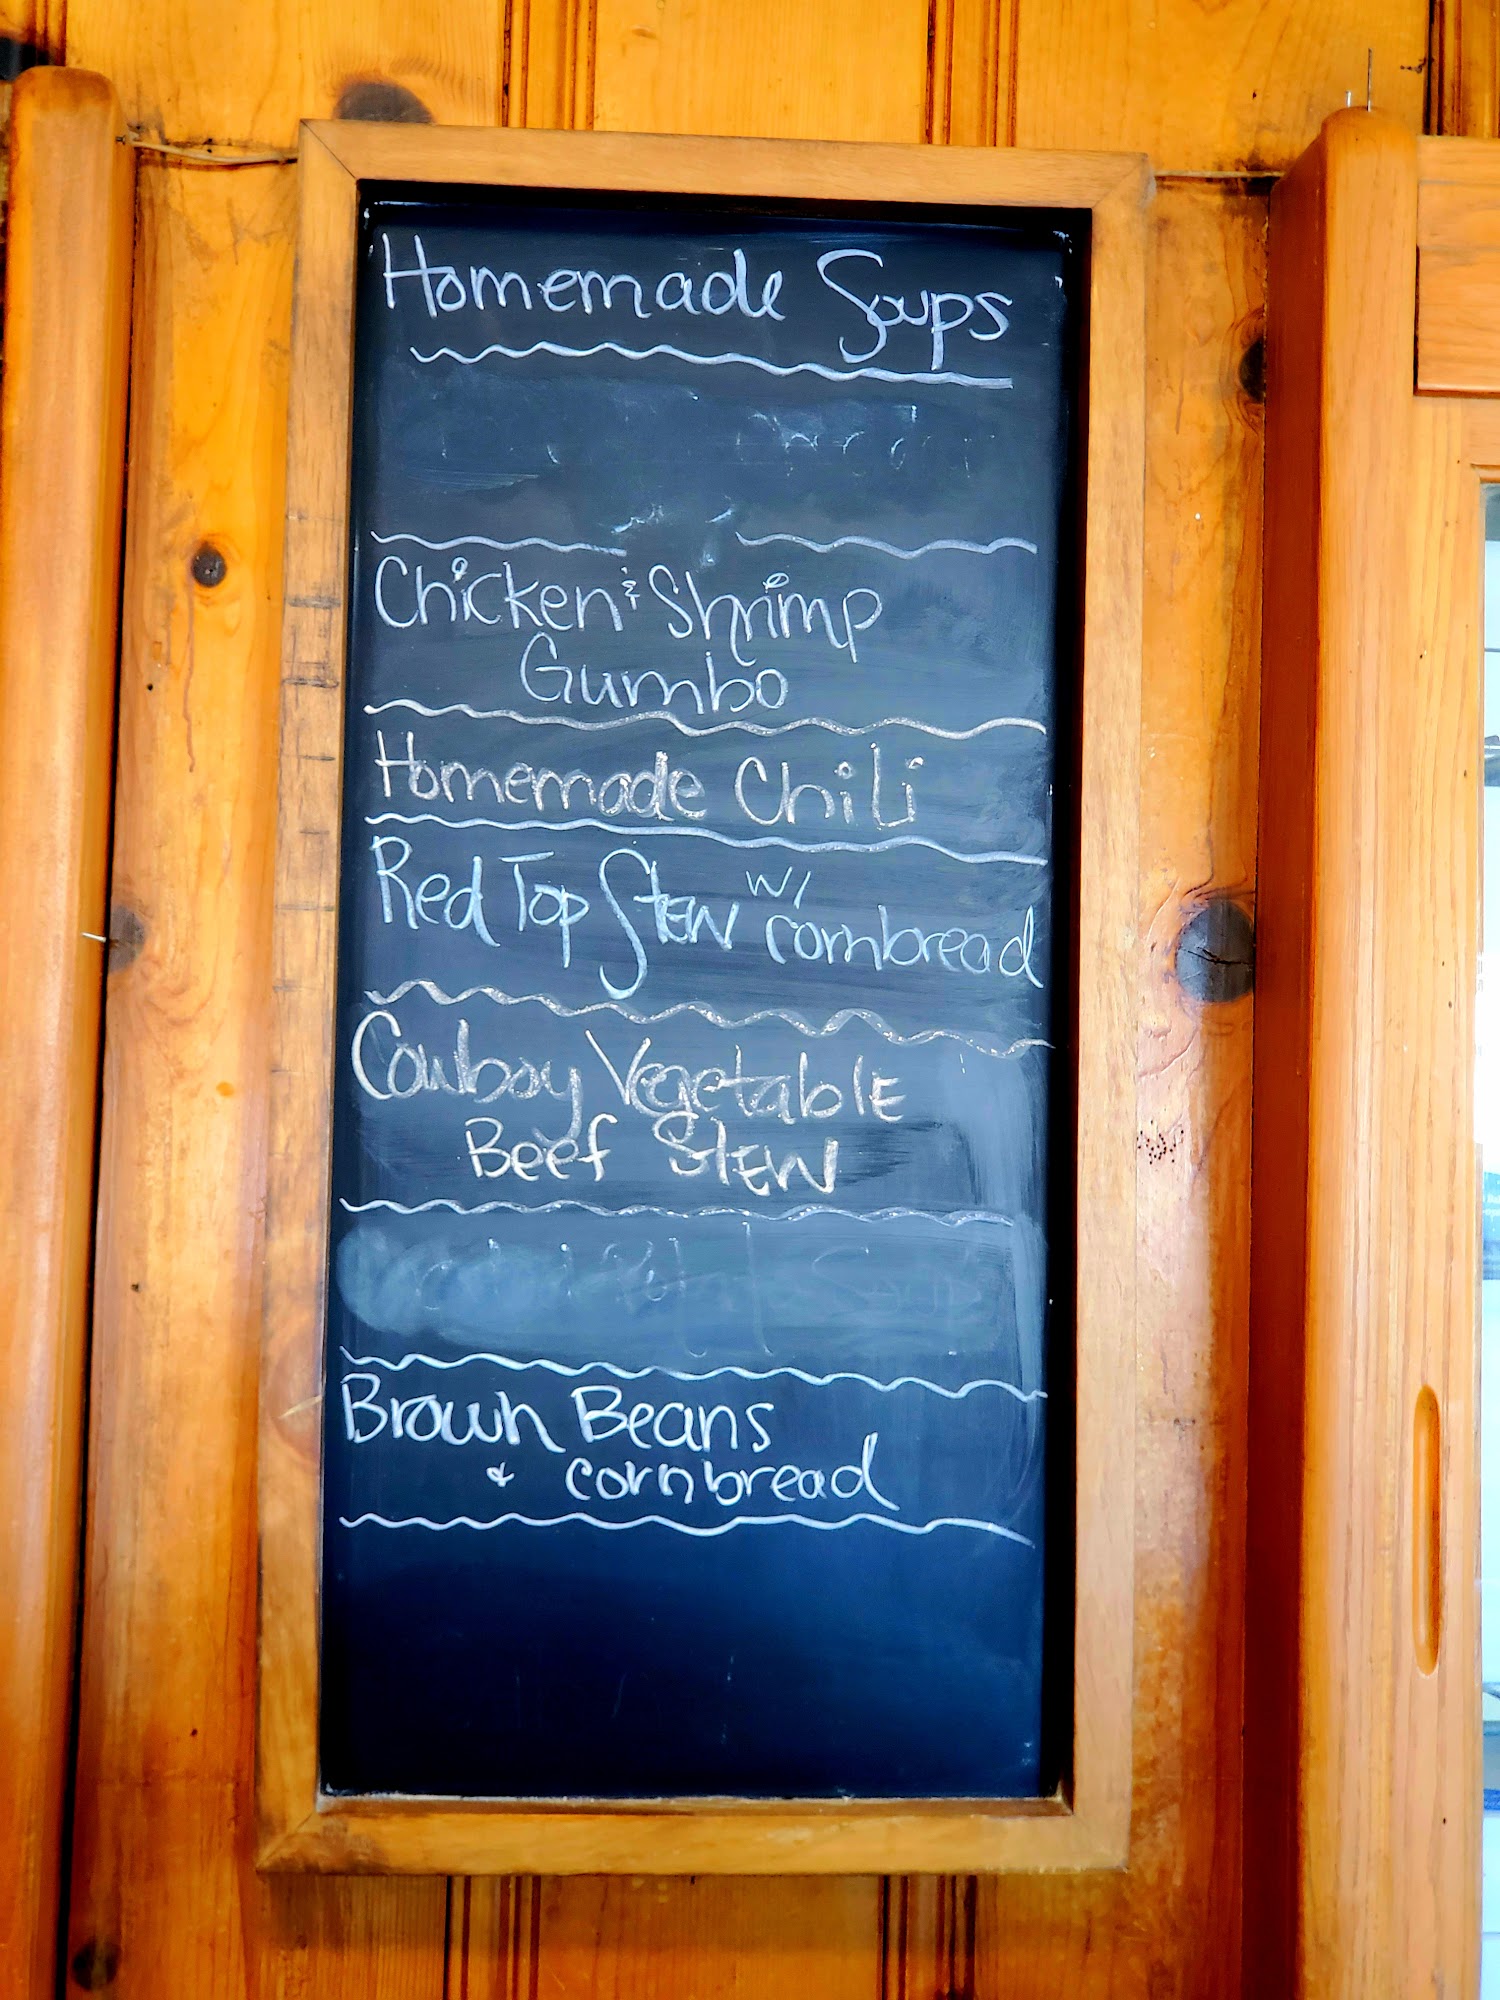 Homemade Soups
Chicken & Shrimp
Gumbo
Homemade Chili
Red Top Stew w/ cornbread
Cowboy Vegetable
Beef Stew
Brown Beans
& cornbread